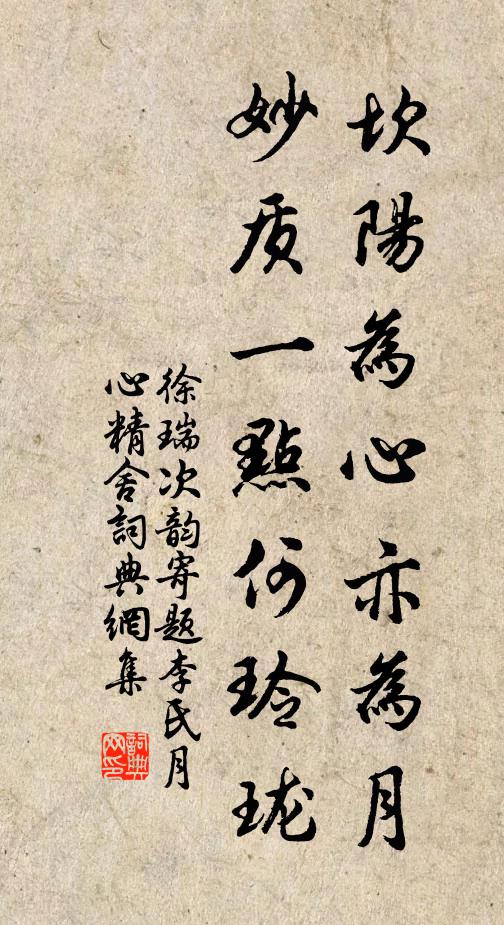 坎陽為心亦為月
妙质一點何玲珑
徐瑞次韵寄题李氏月
心精舍詞典網集
詞典
网印